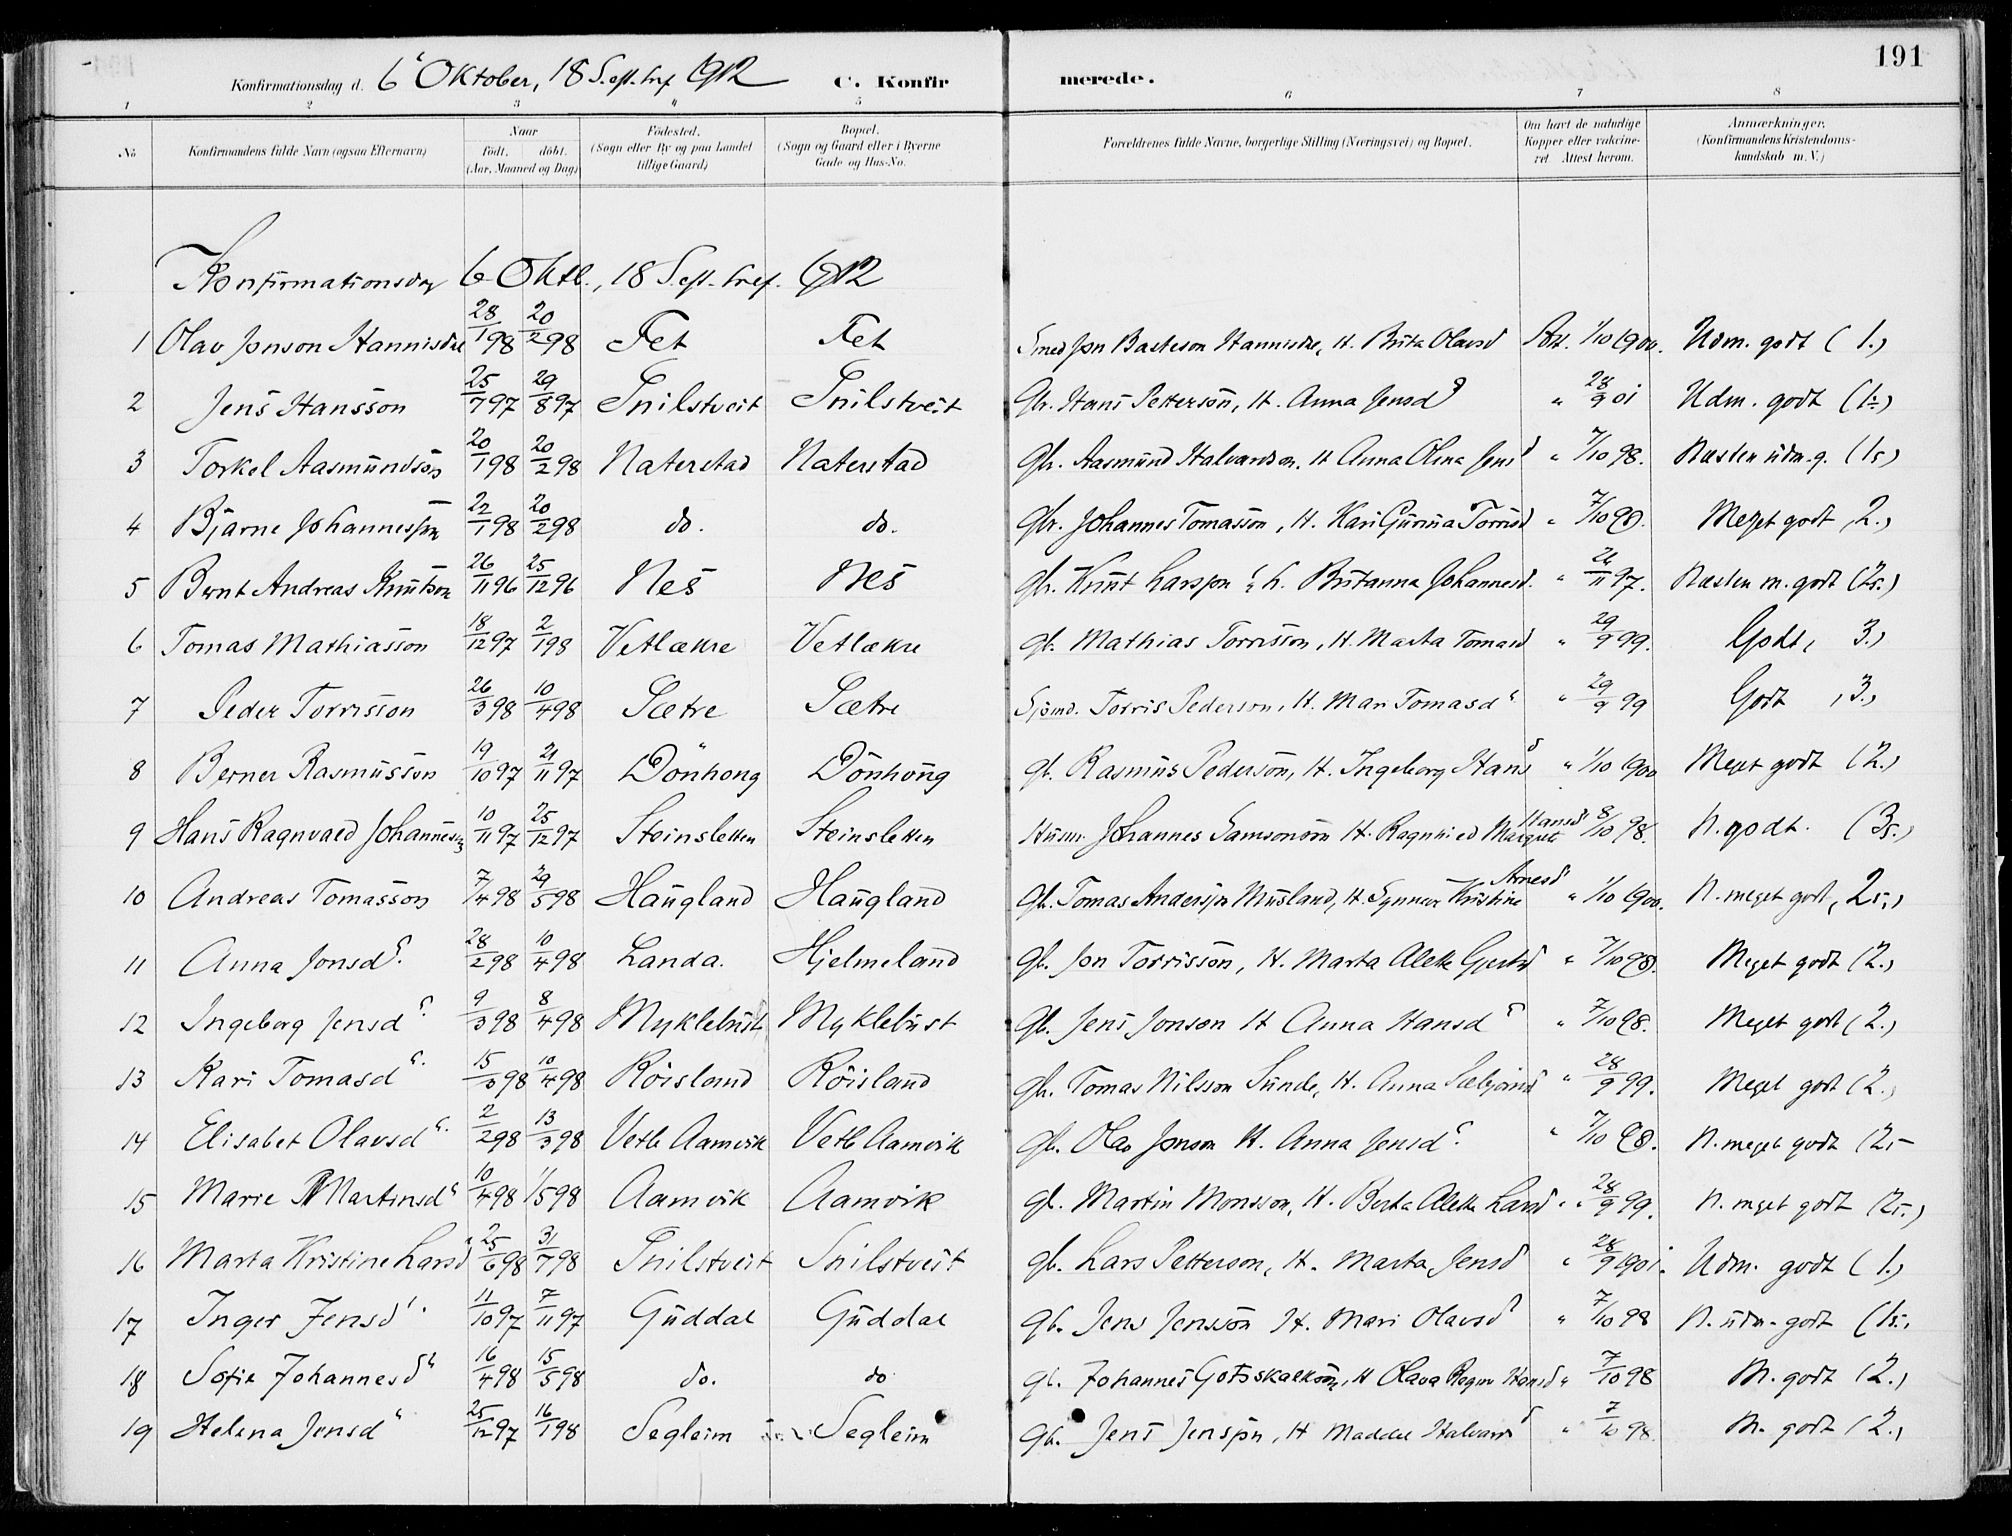 191
Konfirmationsdag d. 6 Oktober, 18 Sept. tref. 1912 C. Konfirmerede.
1 2 3 4 5 6 7 8
No Konfirmandens fulde Navn (ogsaa Efternavn) Naar født. døbt. (Aar, Maaned og Dag) Fødested. (Sogn eller By og paa Landet tillige Gaard) Bopæl. (Sogn og Gaard eller i Byerne Gade og Hus-No. Forældrenes fulde Navne, borgerlige Stilling (Næringsvei) og Bopæl. Om havt de naturlige Kopper eller vakcineret. Attest herom. Anmærkninger. (Konfirmandens Kristendomskundskab m. V.)
Konfirmationsdag 6 Oktb., 18 S. eft. tref. 1912
1 Olav Jonson Hannisdal 28/1 98 20/2 98 Fet Fet Smed Jon Hannisdal, H. Brita Olavsd Att. 1/10 1900. Udm. godt (1.)
2 Jens Hansson 25/7 97 29/8 97 Snilstveit Snilstveit Gbr. Hans Petterson, H. Anna Jensd " 28/9 01 Udm. godt (1.)
3 Torkel Aasmundson 20/1 98 20/2 98 Naterstad Naterstad Gbr. Aasmund Halvardson, H Anna Olina Jensd " 7/10 98. Næsten udm. g. (1.5)
4 Bjarne Johannesson 22/1 98 20/2 98 do. do. Gbr. Johannes Tomasson, H. Kari Gurina Torrisd " 7/10 98. Meget godt, 2.)
5 Bernt Andreas Knutson 26/11 96 25/12 96 Nes Nes Gbr. Knut Larsson & h. Britanna Johannesd. " 26/11 97. Næsten m. godt (2.5.)
6 Tomas Mathiasson 18/12 97 2/1 98 Vetlækre Vetlækre gb. Mathias Torrisson, H. Marta Tomasd " 29/9 99. Godt, 3.)
7 Peder Torrisson 26/3 98 10/4 98 Sætre Sætre Sjømd. Torris Pederson, H. Mari Tomasd " 29/9 99 Godt, 3.)
8 Berner Rasmusson 19/10 97 21/11 97 Dönhaug Dönhaug gb. Rasmus Pederson, H. Ingeborg Hansd " 1/10 1900 Meget godt (2.)
9 Hans Ragnvald Johanneson 10/11 97 25/12 97 Steinsletten Steinsletten Husm. Johannes Samsonson H. Margrete Hansd 8/10 98. N. godt. (3.5.)
10 Andreas Tomasson 7/4 98 29/5 98 Haugland Haugland Gb. Tomas Andersson Musland, H. Synneva Kristine Arnesd " 1/10 1900. N. meget godt, 2.5.)
11 Anna Jonsd. 28/2 98 10/4 98 Landa. Hjelmeland gb. Jon Torrisson, H. Marta Aletta Gjertsd " 7/10 98. Meget godt (2.)
12 Ingeborg Jensd 9/3 98 8/4 98 Myklebust Myklebust gb. Jens Jonson H Anna Hansd " 7/10 98. Meget godt (2.)
13 Kari Tomasd. 15/3 98 10/4 98 Röisland Röisland gb. Tomas Nilsson Sunde, H. Anna " 28/9 99. Meget godt (2.)
14 Elisabet Olavsd. 2/2 98 13/3 98 Vetle Aamvik Vetle Aamvik gb. Olav Jonson H. Anna Jensd. " 7/10 98. N. meget godt (2.-
15 Marie Martinsd 10/4 98 1/5 98 Aamvik Aamvik gb. Martin Monsson, H. Berta Aletta Larsd " 28/9 99. N. meget godt (2.5.)
16 Marta Kristine Larsd 25/6 98 31/7 98 Snilstveit Snilstveit gb. Lars Petterson, H. Marta Jensd " 28/9 1901. Udm. godt (1.)
17 Inger Jensd. 11/10 97 7/11 97 Guddal Guddal gb. Jens Jensson H. Mari Olavsd " 7/10 98 N. udm. godt (1.5.,
18 Sofie Johannesd 16/4 98 15/5 98 do. do gb. Johannes Gotskalkson, H Olava Hansd " 7/10 98 M. godt (2.)
19 Helena Jensd 25/12 97 16/1 98 Segleim Segleim gb. Jens Jenson, H Maddel Halvardsd " 7/10 98. M. godt (2.)